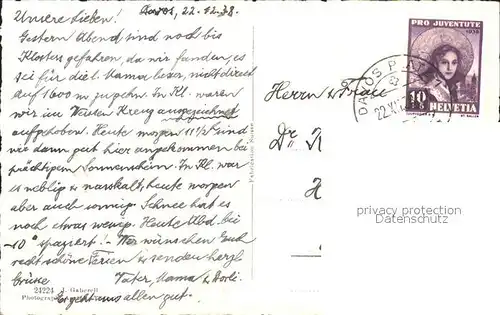 Davos, 22.12.38.
Unsere Lieben!
Gestern Abend sind noch bis
Klosters gefahren, da wir fanden, es
sei für die l. Mama besser, nicht direkt
auf 1600 m zu gehn. In Kl. waren
wir im Weissen Kreuz ausgezeichnet
aufgehoben. Heute morgen 11½ sind
wir dann gut hier angekommen bei
prächtigem Sonnenschein. In Kl. war
es neblig u. nasskalt, heute morgen
aber auch sonnig. Schnee hat es
noch etwas wenig. Heute Abd. bei
-10° spaziert! – Wir wünschen Euch
recht schöne Ferien u. senden herzl.
Grüsse Vater, Mama u. Dorli.
Es geht uns allen gut.
24224 J. Gaberell
Photograph
PRO JUVENTUTE
1938
10
HELVETIA
DAVOS PLATZ
22.XII
Herrn u. Frau
Dr.
privacy protection
Datenschutz